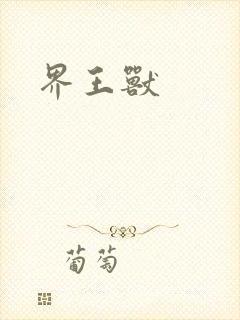 界王獸
葡萄